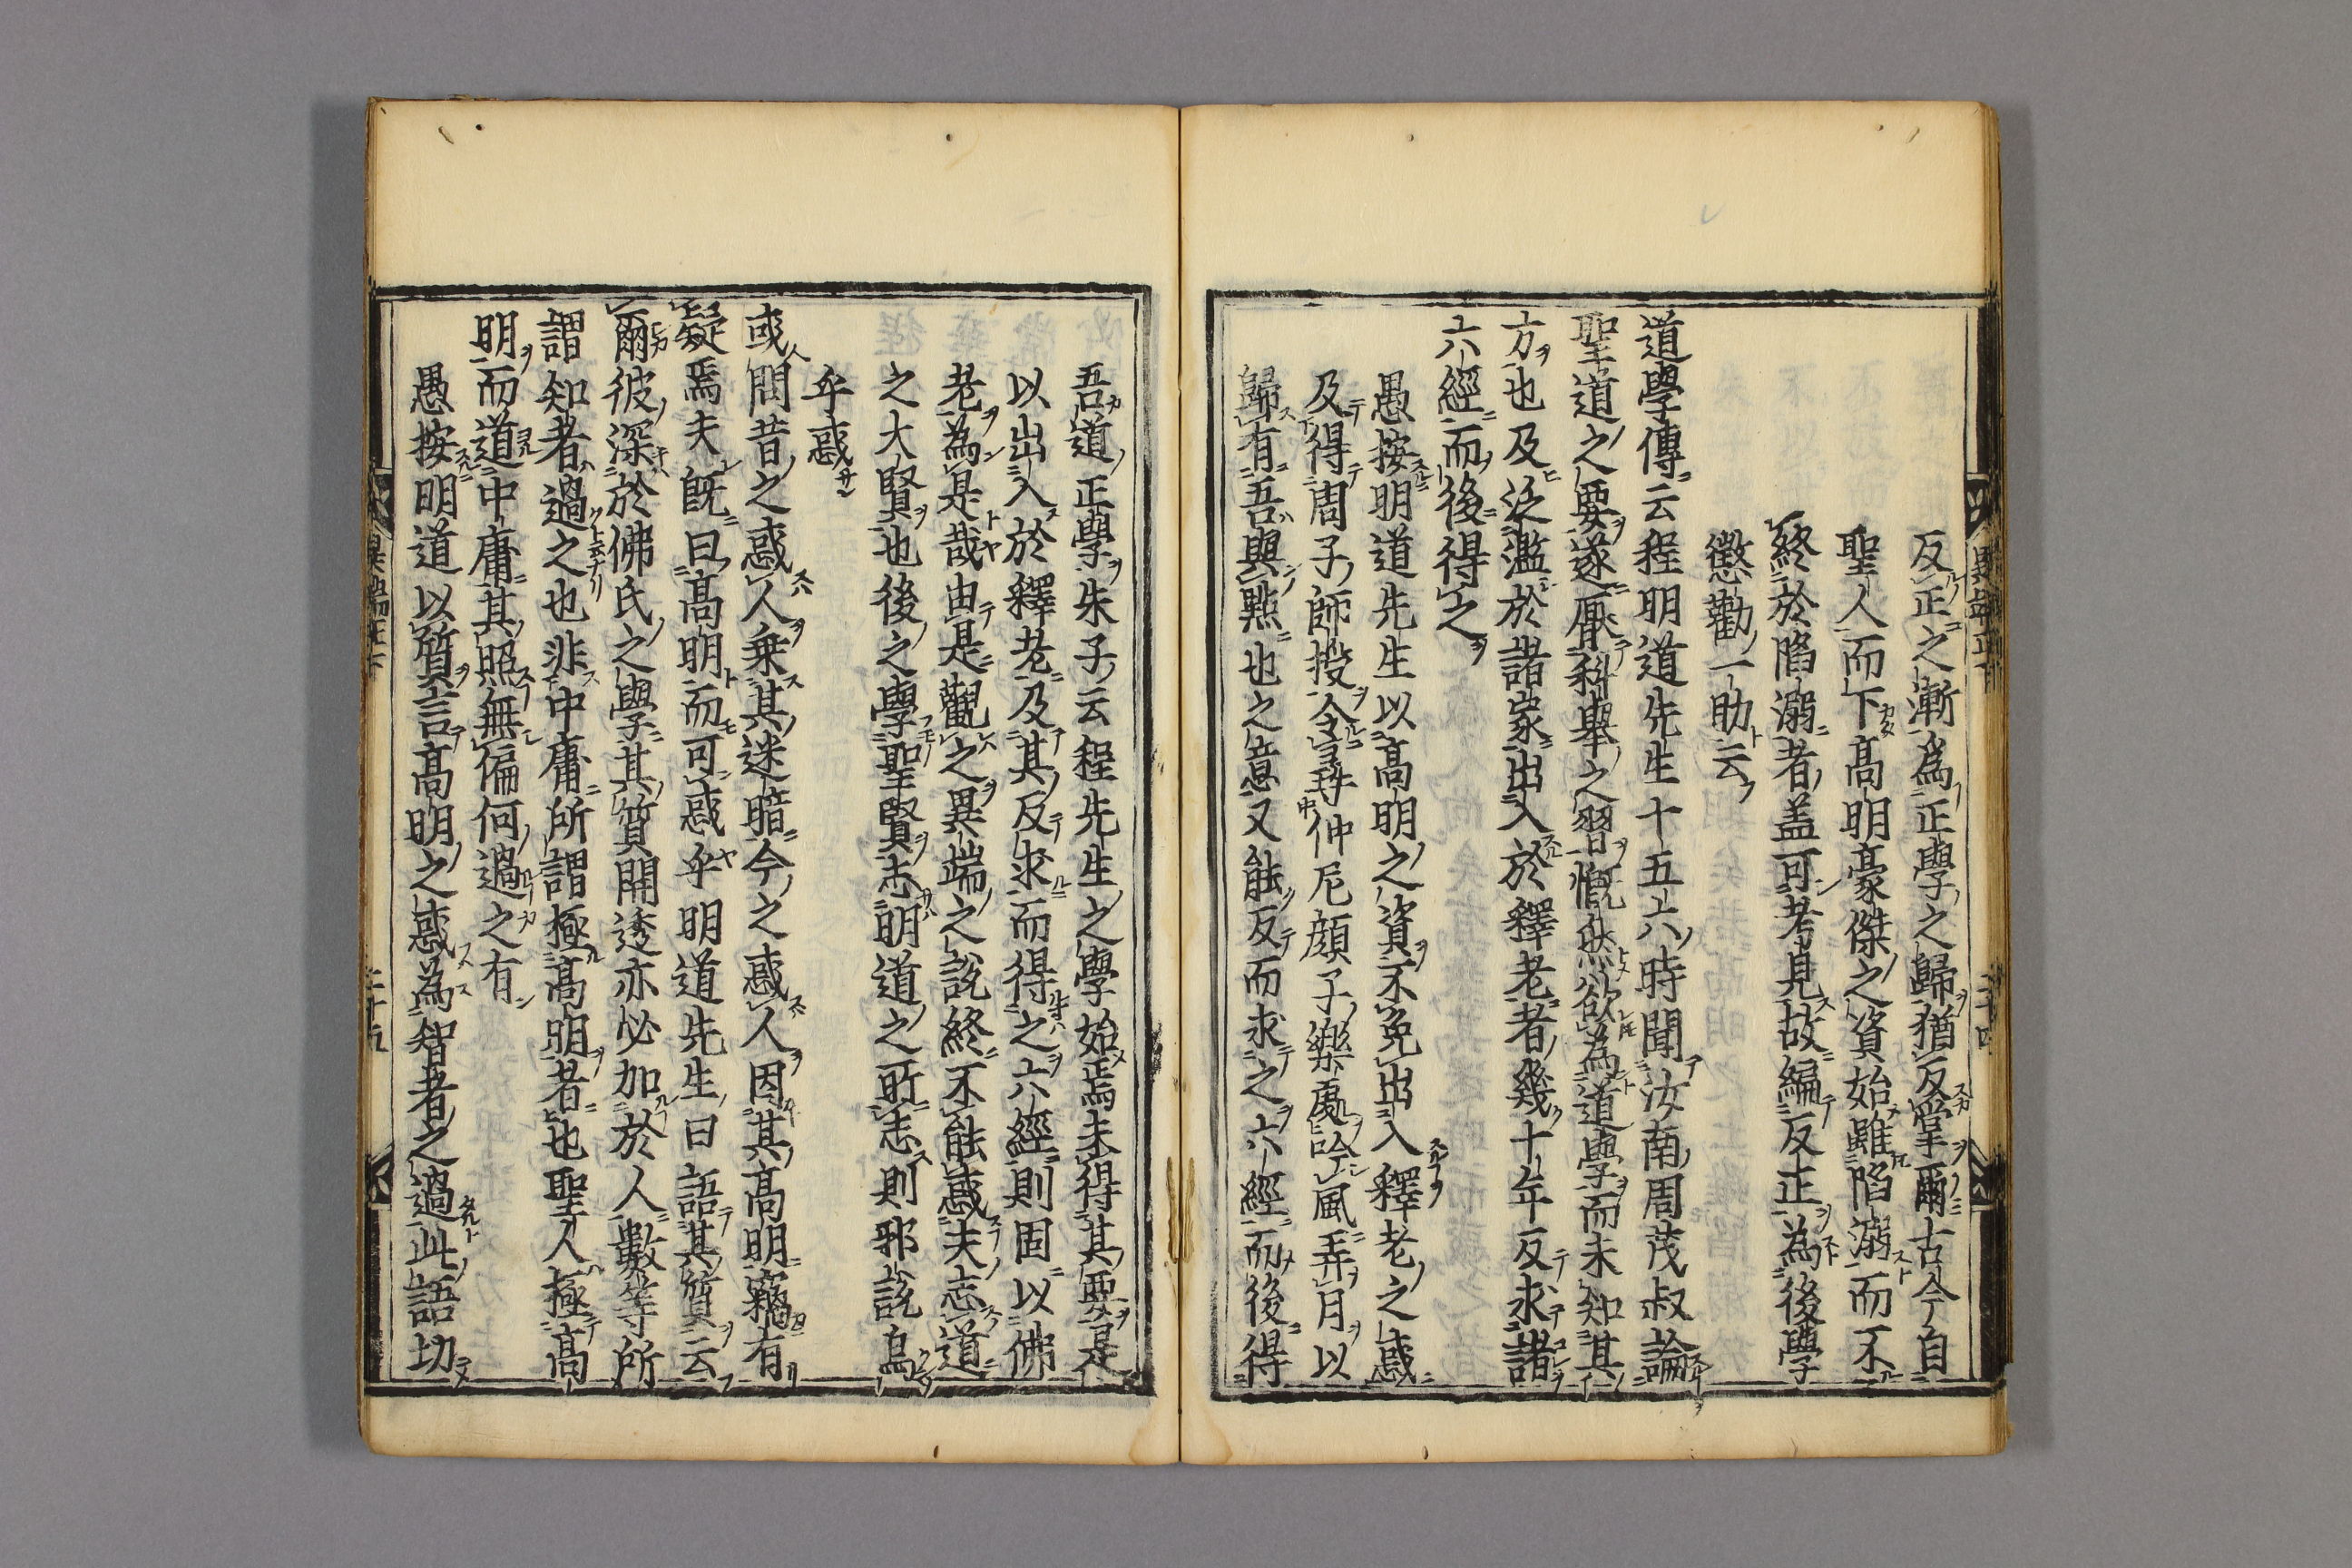 反正之漸爲正學之歸猶反掌爾古今自
聖人而下高明豪傑之資始雖陷溺而不
終於陷溺者盖可考見故編反正為後學
懲勸一助云
道學傳云程明道先生十五六時聞汝南周茂叔論
聖道之要遂厭科舉之習慨然欲為道學而未知其
方也及泛濫於諸家出入於釋老者幾十年反求諸
六經而後得之
愚按明道先生以高明之資不免出入釋老之惑
及得周子師授令尋仲尼顔子樂處吟風弄月以
歸有吾與點也之意又能反而求之六經而後得
吾道正學朱子云程先生之學始焉未得其要是
以出入於釋老及其反求而得之六經則固以佛
老為是哉由是觀之異端之說終不能惑夫志道
之大賢也後之學聖賢志明道之所志則邪說烏
乎惑
或問昔之惑人乗其迷暗今之惑人因其高明竊有
疑焉夫既曰高明而可惑乎明道先生曰語其質云
爾彼深於佛氏之學其質開透亦必加於人數等所
謂知者過之也非中庸所謂極高明者也聖人極高
明而道中庸其照無偏何過之有
愚按明道以質言高明之惑為智者之過此語切
異端正下
二十五